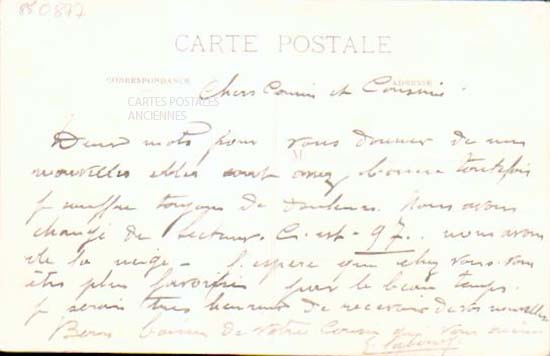 880877
CARTE POSTALE
CORRESPONDANCE
ADRESSE
CARTES POSTALES
ANCIENNES
Chers Cousin et Cousine.
Deux mots pour vous donner de mes
nouvelles elles sont assez bonnes toutefois
je souffre toujours de douleurs. Nous avons
changé de secteur. C. est. 97.. nous avons
de la neige - J'espère que chez vous vous
êtes plus favorisés par le beau temps.
je serais très heureux de recevoir de vos nouvelles
Bons baisers de votre Cousin qui vous